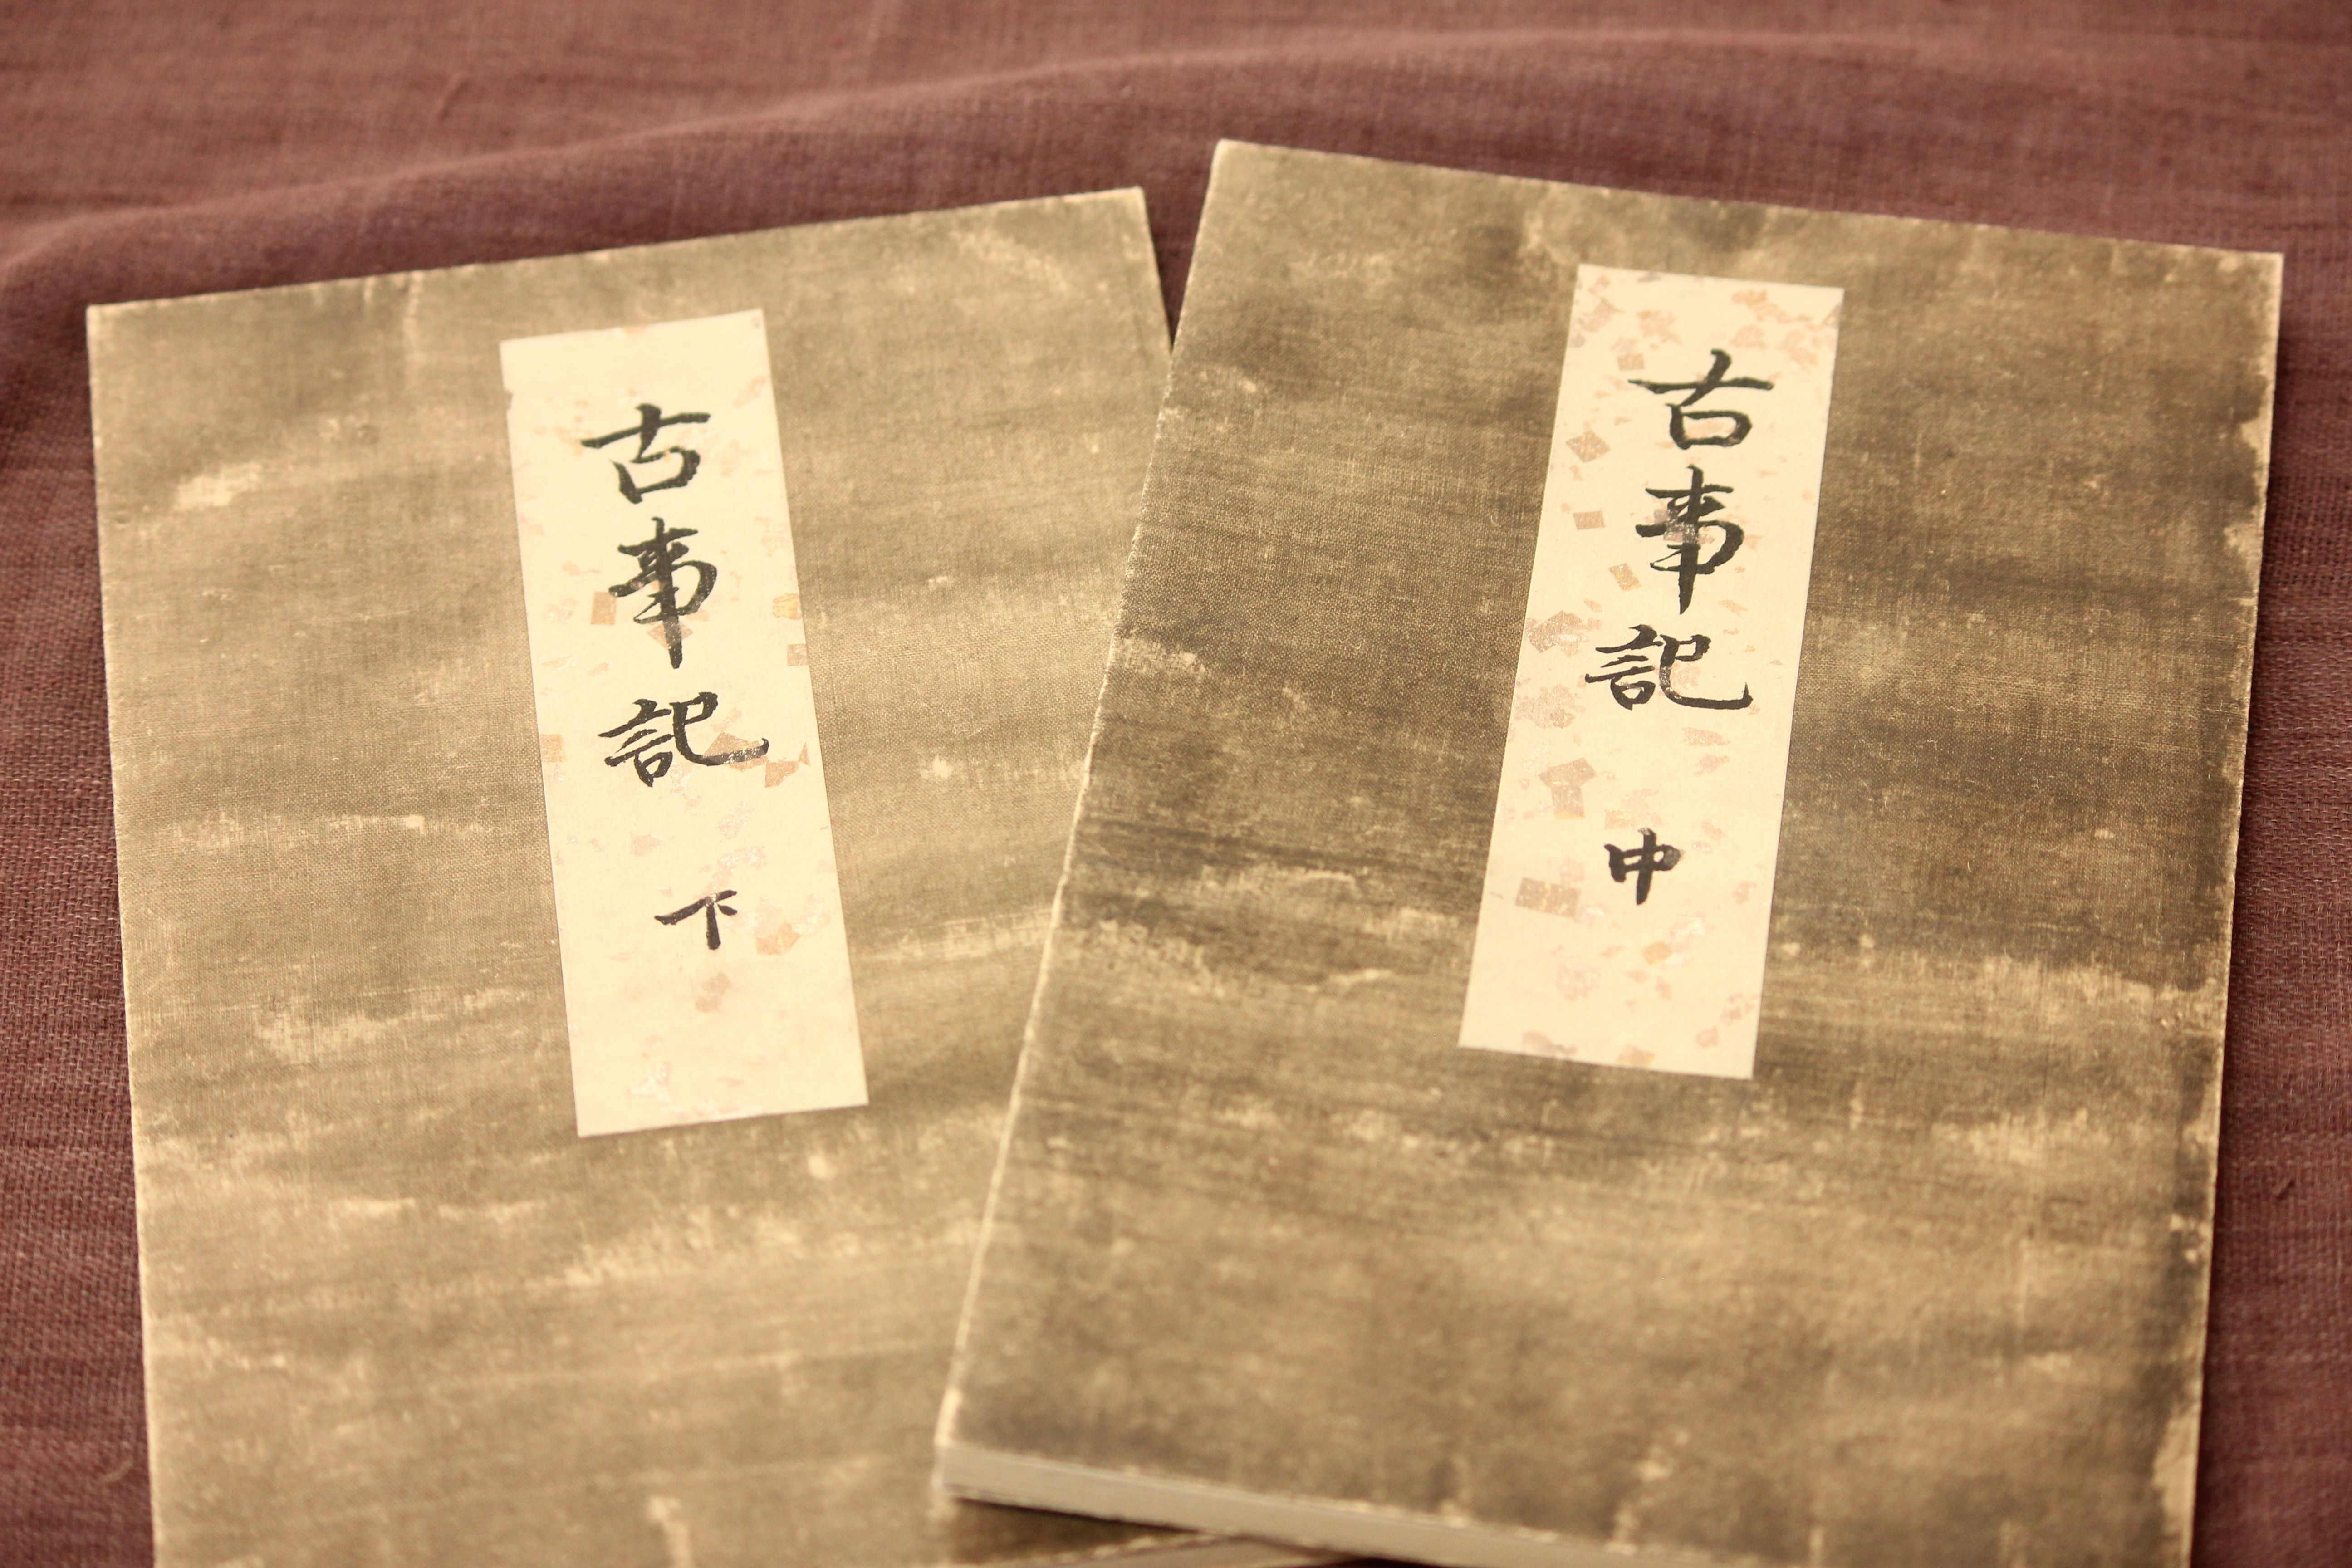 古事記 下
古事記 中